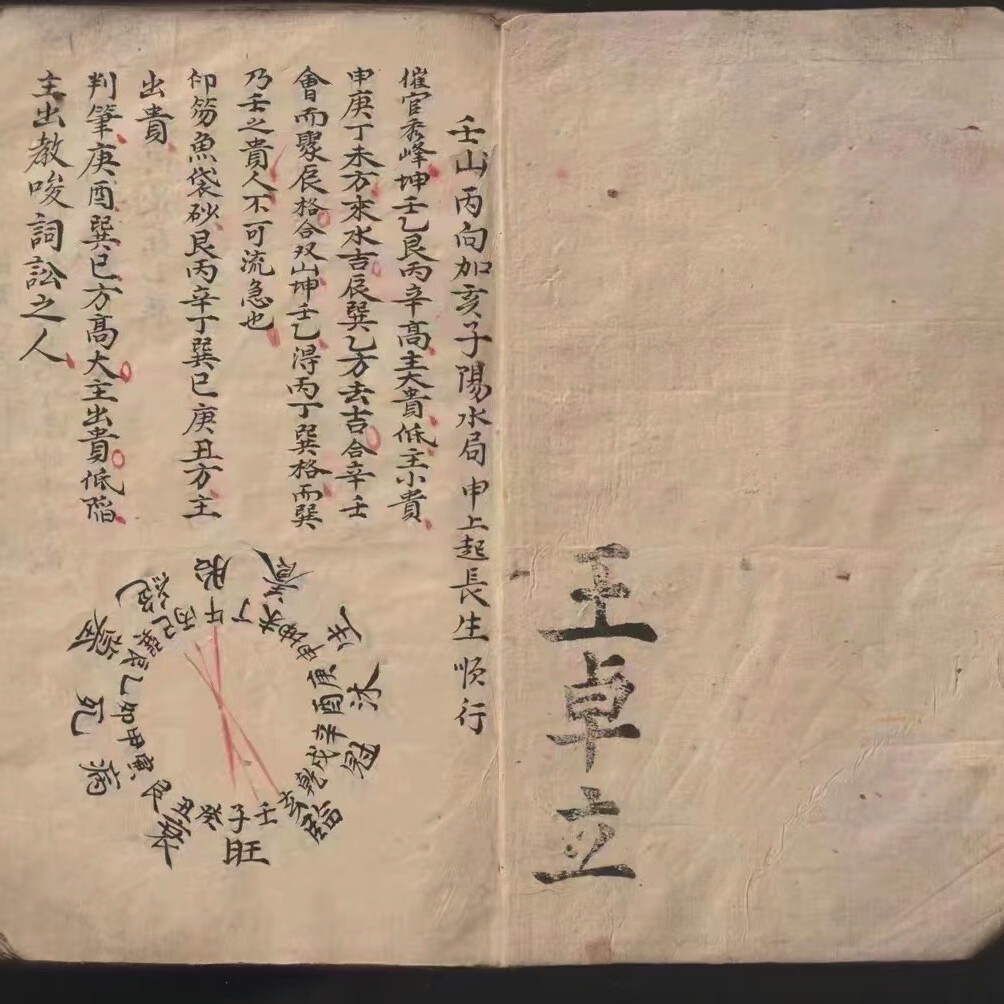 王卓立
壬山丙向加亥子陽水局申上起長生順行
催官秀峰坤壬乙艮丙辛高主大貴低主小貴
申庚丁未方來水吉辰巽乙方去吉合辛壬
會而聚辰格合双山坤壬乙淂丙丁巽格而巽
乃壬之貴人不可流急也
印笏魚袋砂艮丙辛丁巽巳庚丑方主
出貴
判筆庚酉巽巳方高大主出貴低陷
主出教唆詞訟之人
胎養生沐冠臨旺衰病死
午丁未坤申庚酉辛戌乾亥壬子癸丑艮寅甲卯乙辰巽巳丙